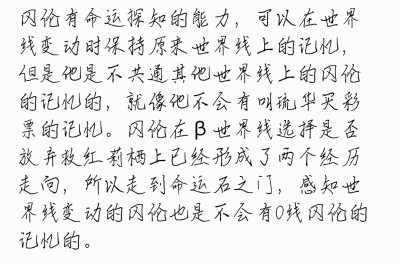 冈伦有命运探知的能力，可以在世界
线变动时保持原来世界线上的记忆，
但是他是不共通其他世界线上的冈伦
的记忆的，就像他不会有叫琉华买彩
票的记忆。冈伦在β世界线选择是否
放弃救红莉栖上已经形成了两个经历
走向，所以走到命运石之门，感知世
界线变动的冈伦也是不会有0线冈伦的
记忆的。